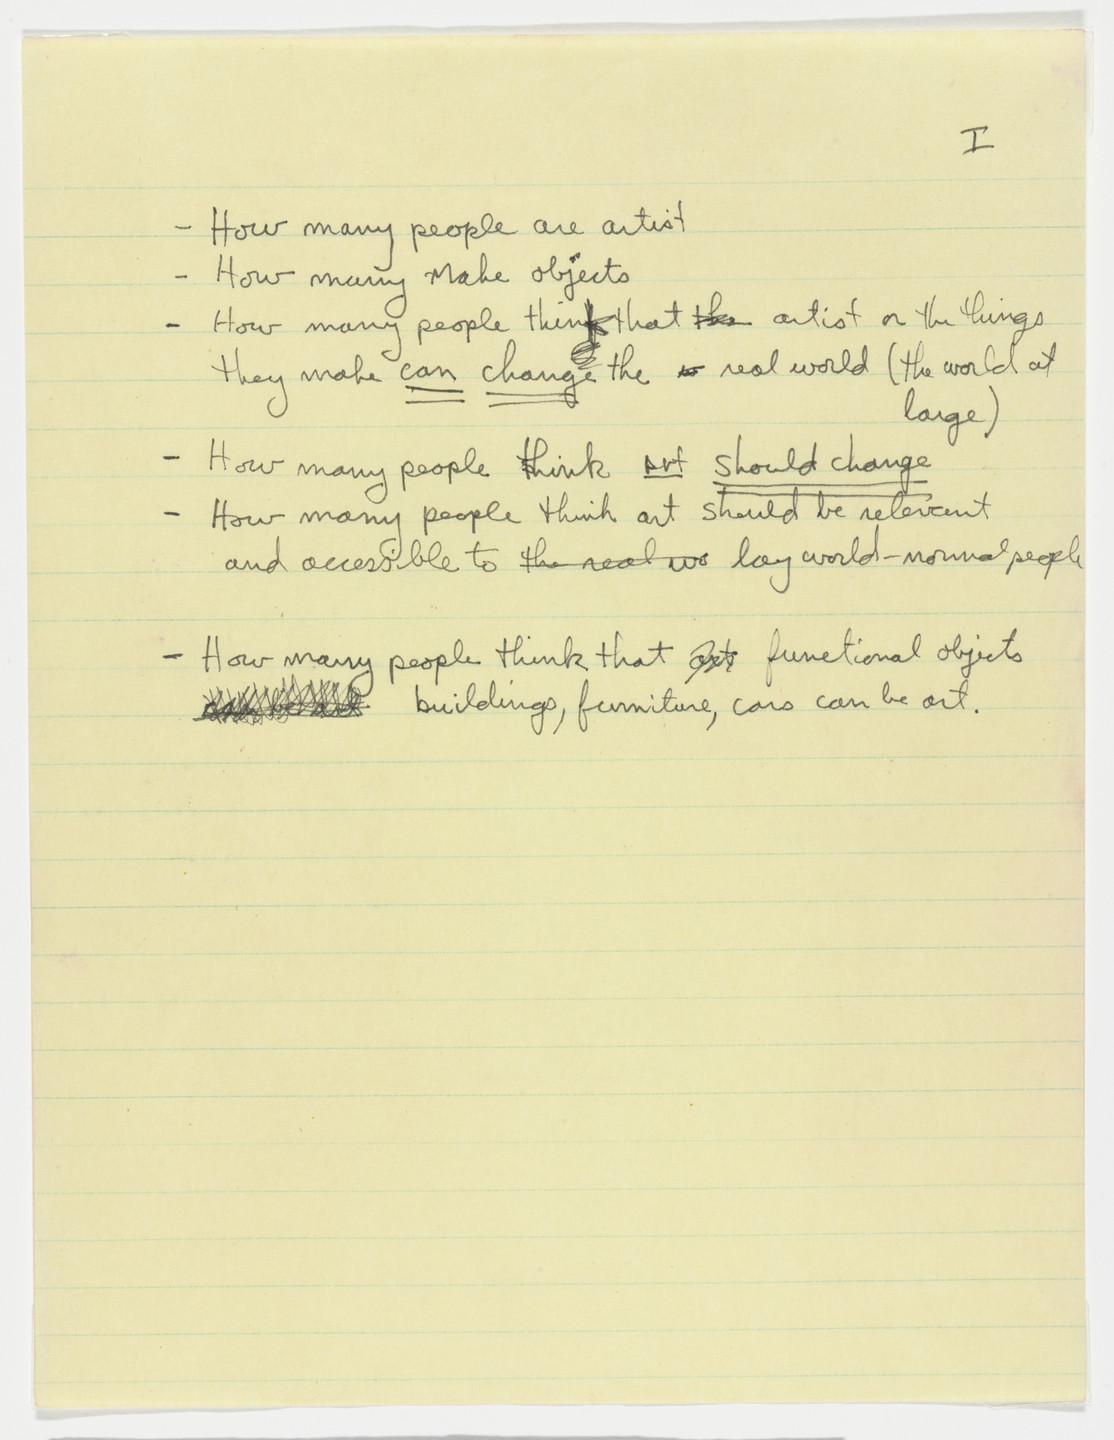 I
- How many people are artist
- How many make objects
- How many people think that the artist or the things
they make can change the real world (the world at
large)
- How many people think art should change
- How many people think art should be relevent
and accessible to the real wo lay world - normal people
- How many people think that art functional objects
can be art buildings, furniture, cars can be art.